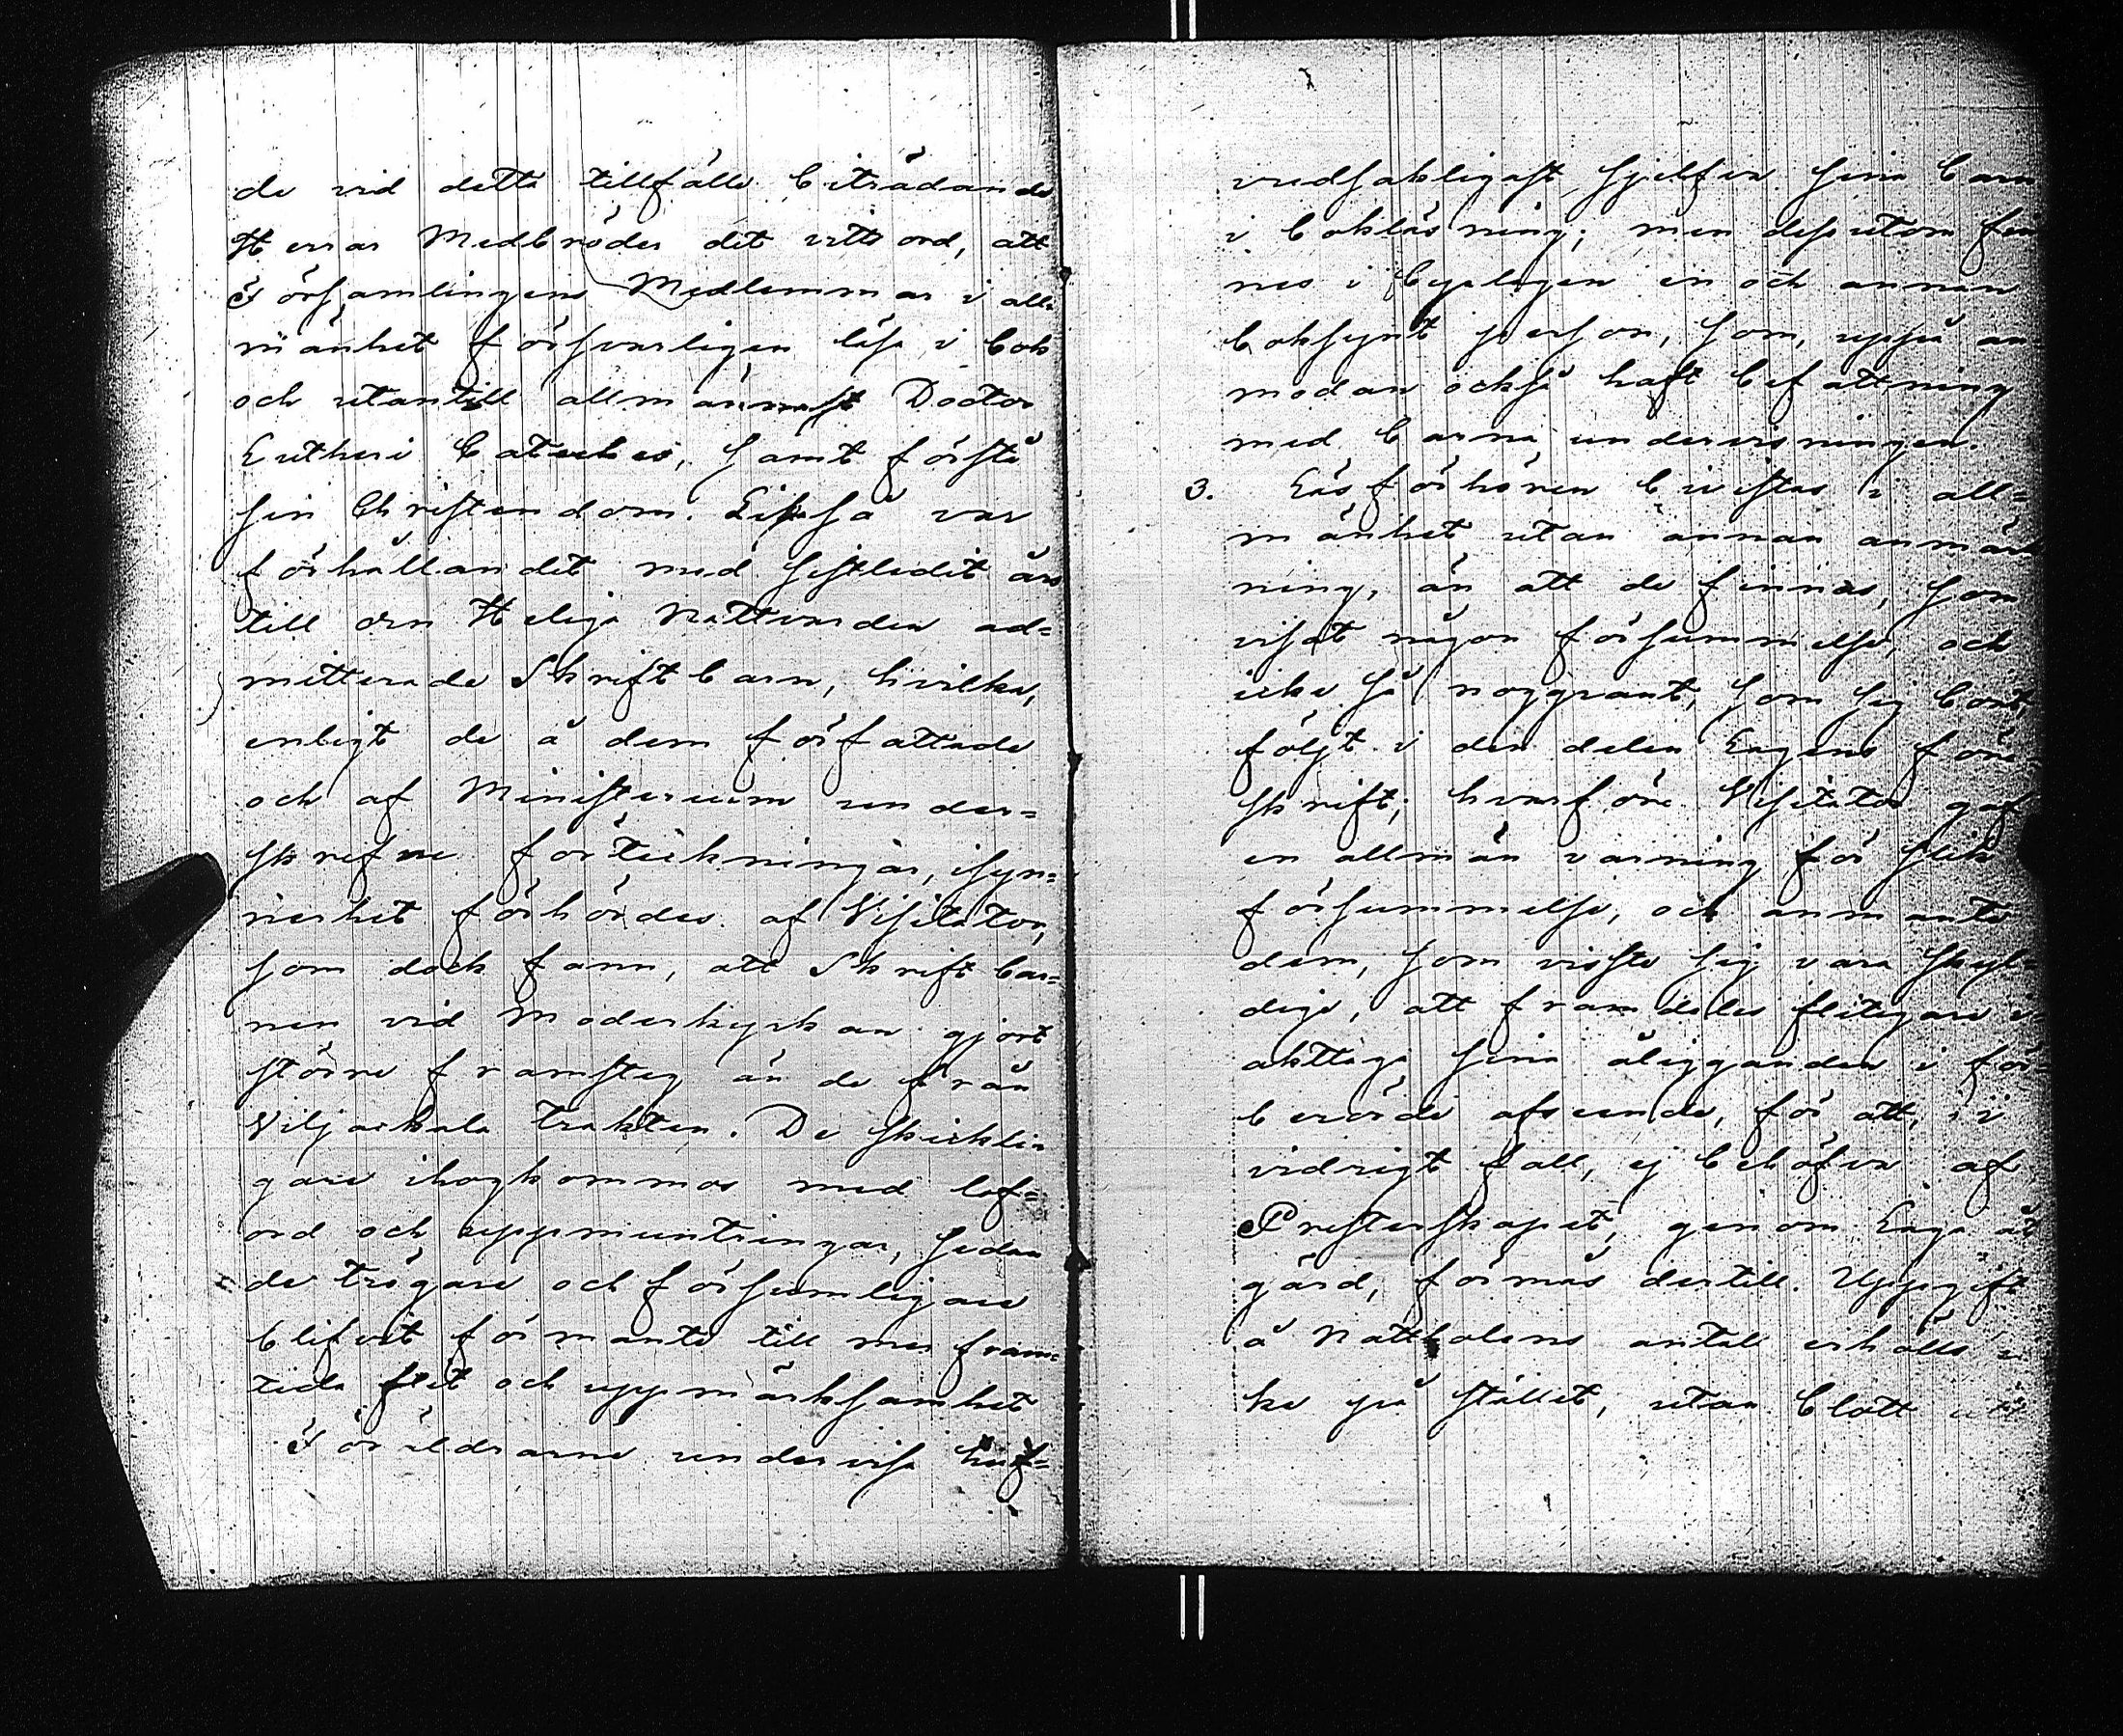 de vid detta tillfälle biträdande
Herrar Medbröder det vittsord, att
Församlingens Medlemmar i all=
mänhet försvarligen läsa i bok
och utantill allmännast Doctor
Lutheri Cateches, samt förstå
sin Christendom. Likaså var
förhållandet med sistledit års
till den Heliga Nattvarden ad=
mitterade Skriftbarn, hvilka,
enligt de å dem författade
och af Ministerium under=
skrefne förteckningar, isyn=
nerhet förhördes af Visitator,
som dock fann, att Skriftbar=
nen vid Moderkyrkan gjort
större framsteg än de från
Viljackala trakten. De skickli=
gare ihogkommos med lof=
ord och uppmuntringar, sedan
de trögare och försumligare
blifvit förmante till mer fram=
tida flit och uppmärksamhet
Föräldrarne undervisa huf=
vudsakligast sjelfva sina barn
i bokläsning; men dessutom fin
nes i byalagen en och annan
boksynt person, som, uppå an
modan också haft befattning
med barna undervisningen.
3. Läsförhören bevistas i all=
mänhet utan annan anmärk
ning, än att de finnas, som
visat någon försummelse, och
icke så noggrant, som sig bort,
följt i den delen Lagens före
skrift; hvarföre Visitator gaf
en allmän varning för slik
försummelse, och anmante
dem, som visste sig vara skyl=
dige, att framdeles flitigare i
akttaga sina åligganden i för=
berörde afseende, för att, i
vidrigt fall, ej behöfva af
Presterskapet, genom Laga åt
gärd, förmås dertill. Uppgift
å Nattvalens antal erhölls ic
ke på stället, utan blott